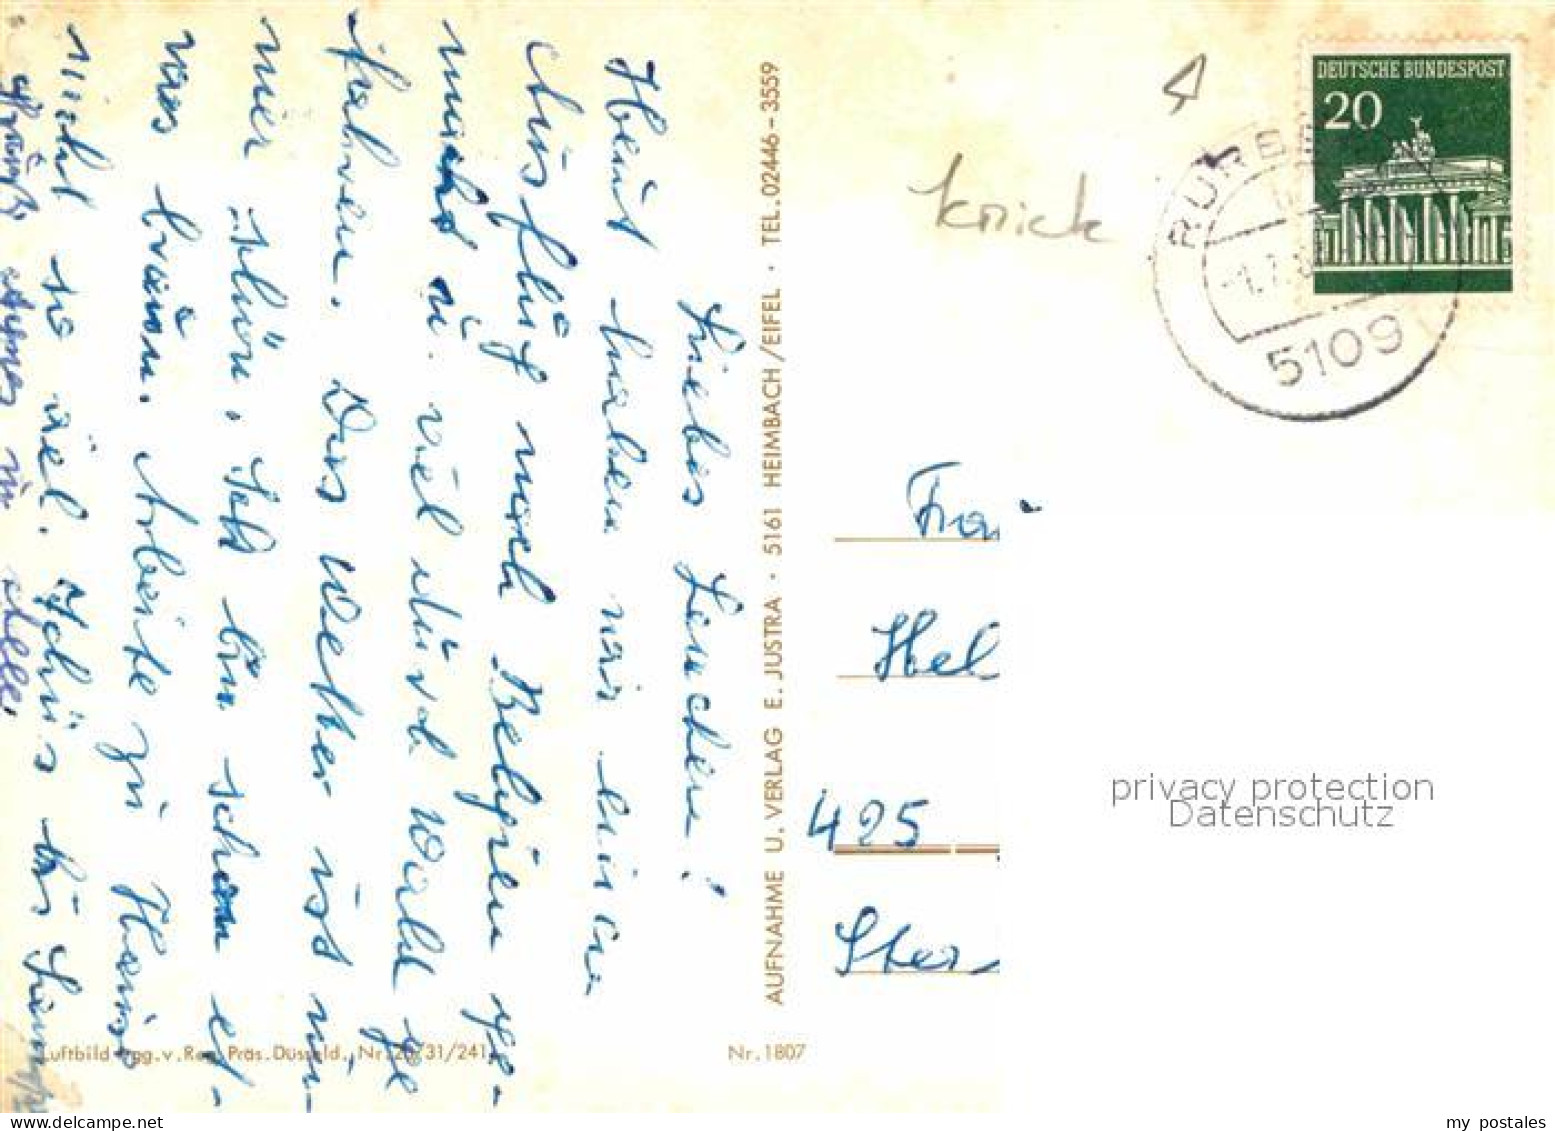 Liebes Lenchen!
Heut haben wir einen
Ausflug nach Belgien ge-
macht u. viel durch Wald ge
fahren. Das Wetter ist im-
mer schön. Ich bin schon et-
was braun. Arbeite zu Hause
nicht so viel. Tschüs bis
Grüß alle
AUFNAHME U. VERLAG E. JUSTRA · 5161 HEIMBACH/EIFEL · TEL. 02446-3559
Luftbild v. Präs. Düsseld. Nr. 31/241
Nr. 1807
knick
DEUTSCHE BUNDESPOST
20
5109
Frau
Hel
425
Ster
privacy protection
Datenschutz
my postales